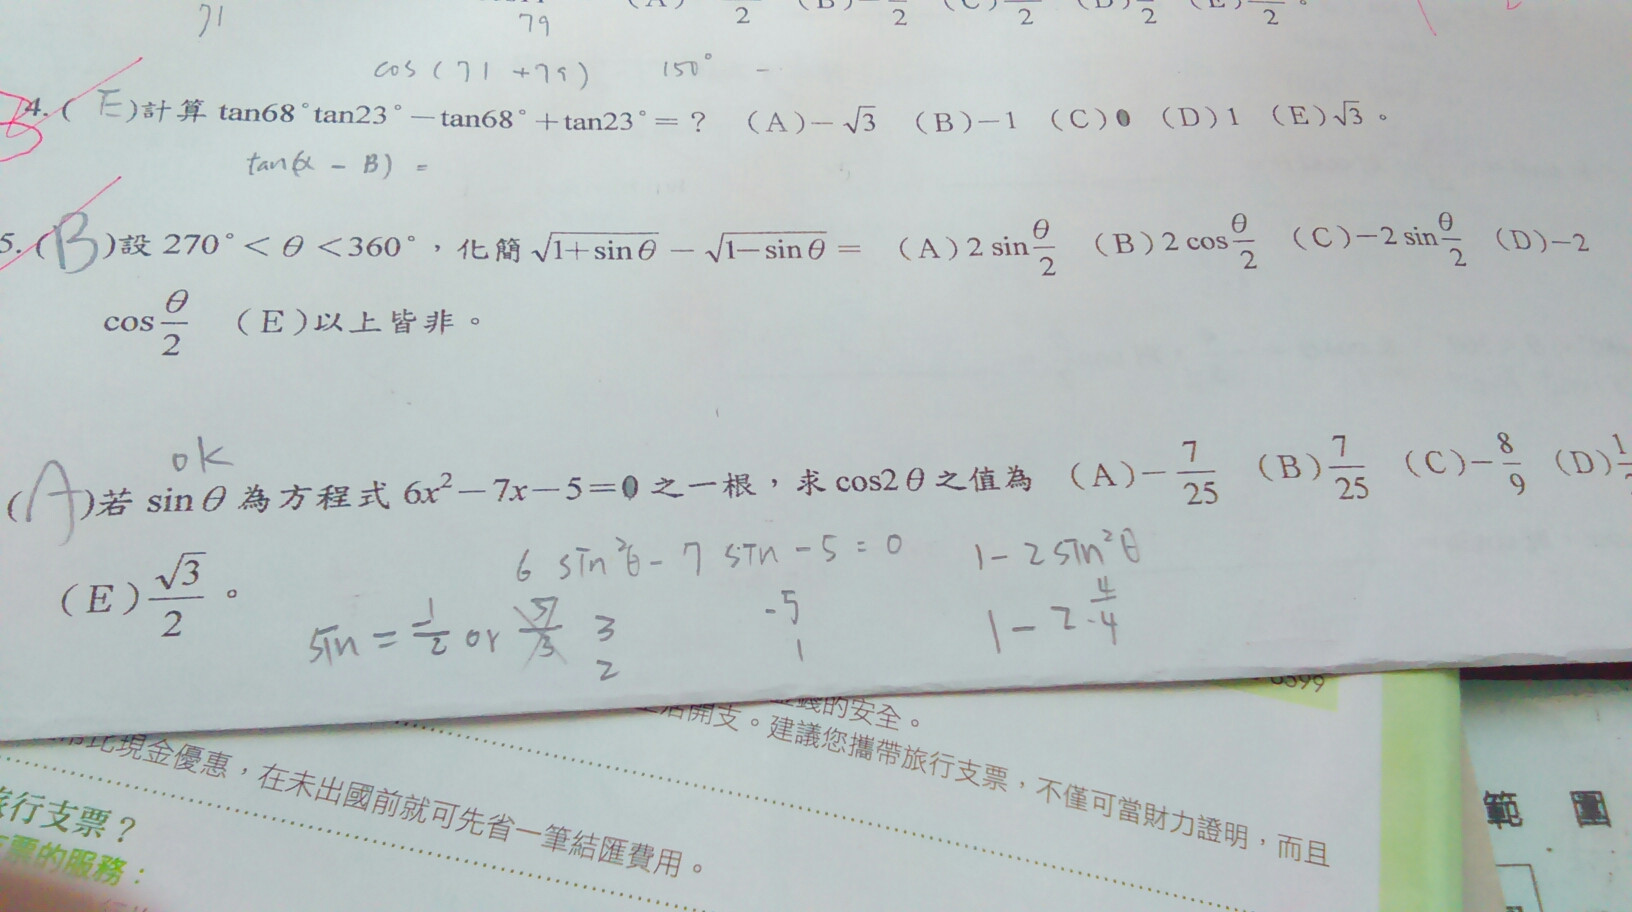 71
79
2 (B) 2 (C) 2 (D) 2 (E) 2 。
cos(71+79) 150° -
4. (E)計算 tan68°tan23°－tan68°＋tan23°＝？ (A)－√3 (B)－1 (C)0 (D)1 (E)√3。
B
tan(α - β) =
5. (B)設 270°＜θ＜360°，化簡√(1＋sinθ)－√(1－sinθ)＝ (A)2 sin θ/2 (B)2 cos θ/2 (C)－2 sin θ/2 (D)－2
cos θ/2 (E)以上皆非。
ok
(A)若 sinθ為方程式 6x²－7x－5＝0 之一根，求 cos2θ之值為 (A)－7/25 (B)7/25 (C)－8/9 (D)
(E)√3/2。
6 sin²θ - 7 sin - 5 = 0 1 - 2 sin²θ
sin = -1/2 or 5/3 3 -5 1 - 2·
2 1
0599
的安全。
開支。建議您攜帶旅行支票，不僅可當財力證明，而且
比現金優惠，在未出國前就可先省一筆結匯費用。
旅行支票？
支票的服務：
範圍